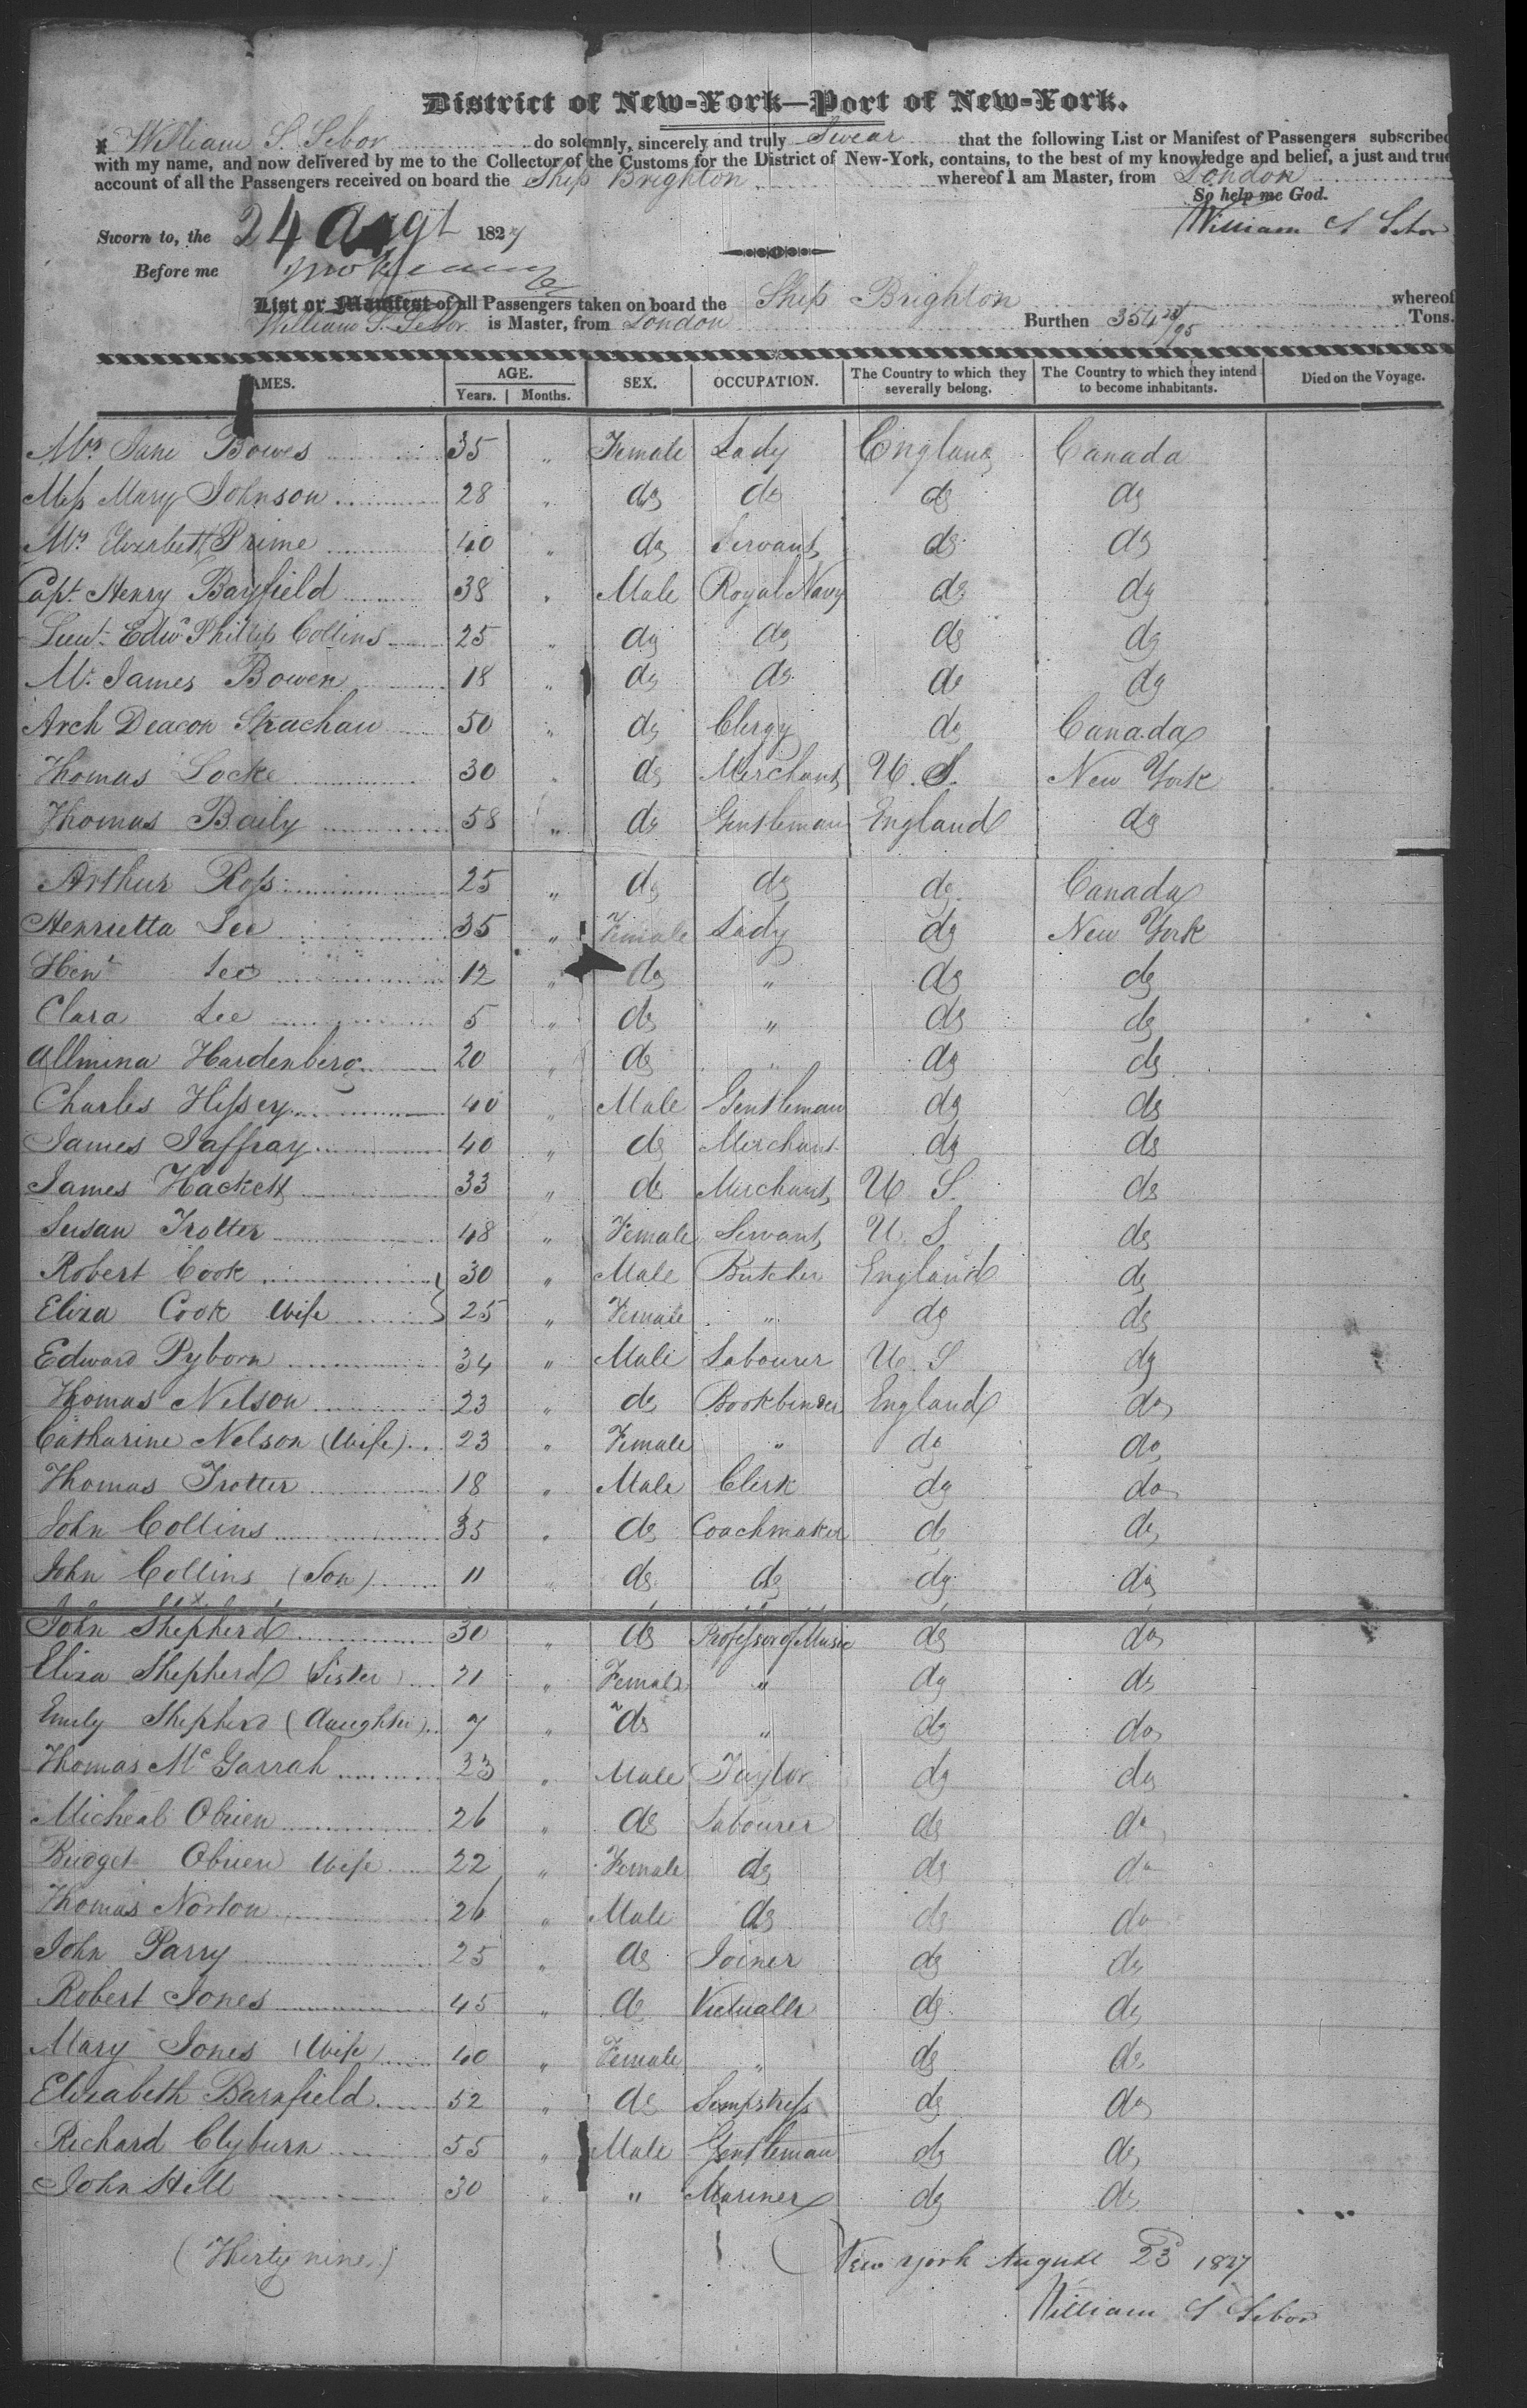 District of New-York—Port of New-York.
I William S. Sebor do solemnly, sincerely and truly Swear that the following List or Manifest of Passengers subscribed
with my name, and now delivered by me to the Collector of the Customs for the District of New-York, contains, to the best of my knowledge and belief, a just and true
account of all the Passengers received on board the Ship Brighton whereof I am Master, from London
So help me God.
William S Sebor
Sworn to, the 24 Augt 1827
Before me
List or Manifest of all Passengers taken on board the Ship Brighton whereof
William S. Sebor is Master, from London Burthen 354 Tons.
NAMES. AGE. Years. Months. SEX. OCCUPATION. The Country to which they severally belong. The Country to which they intend to become inhabitants. Died on the Voyage.
Mrs Jane Bowes 35 " Female Lady England Canada
Miss Mary Johnson 28 " do do do do
Mrs Elizabeth Prime 40 " do Servant do do
Capt. Henry Bayfield 38 " Male Royal Navy do do
Lieut. Edwd Phillip Collins 25 " do do do do
Mr. James Bowen 18 " do do do do
Arch Deacon Strachan 50 " do Clergy do Canada
Thomas Locke 30 " do Merchant U. S. New York
Thomas Baily 58 " do Gentleman England do
Arthur Ross 25 " do do do Canada
Henrietta Lee 35 " Female Lady do New York
Hent Lee 12 " do " do do
Clara Lee 5 " do " do do
Allmina Hardenberg 20 " do " do do
Charles Hissey 40 " Male Gentleman do do
James Jaffray 40 " do Merchant do do
James Hackett 33 " do Merchant U S. do
Susan Trotter 48 " Female Servant U. S. do
Robert Cook 30 " Male Butcher England do
Eliza Cook Wife 25 " Female " do do
Edward Pyborn 34 " Male Labourer U. S do
Thomas Nelson 23 " do Bookbinder England do
Catharine Nelson (Wife) 23 " Female " do do
Thomas Trotter 18 " Male Clerk do do
John Collins 35 " do Coachmaker do do
John Collins (Son) 11 " do do do do
John Shepherd 30 " do Professor of Music do do
Eliza Shepherd (Sister) 21 " Female " do do
Emily Shepherd (daughter) 7 " do " do do
Thomas Mc Garrah 23 " Male Taylor do do
Micheal Obrien 26 " do Labourer do do
Bridget Obrien Wife 22 " Female do do do
Thomas Norton 26 " Male do do do
John Parry 25 " do Joiner do do
Robert Jones 45 " do Victualler do do
Mary Jones (Wife) 40 " Female " do do
Elizabeth Barnfield 52 " do Sempstress do do
Richard Clyburn 55 " Male Gentleman do do
John Hill 30 " " Mariner do do
(Thirty nine)
New York August 23 1827
William S Sebor